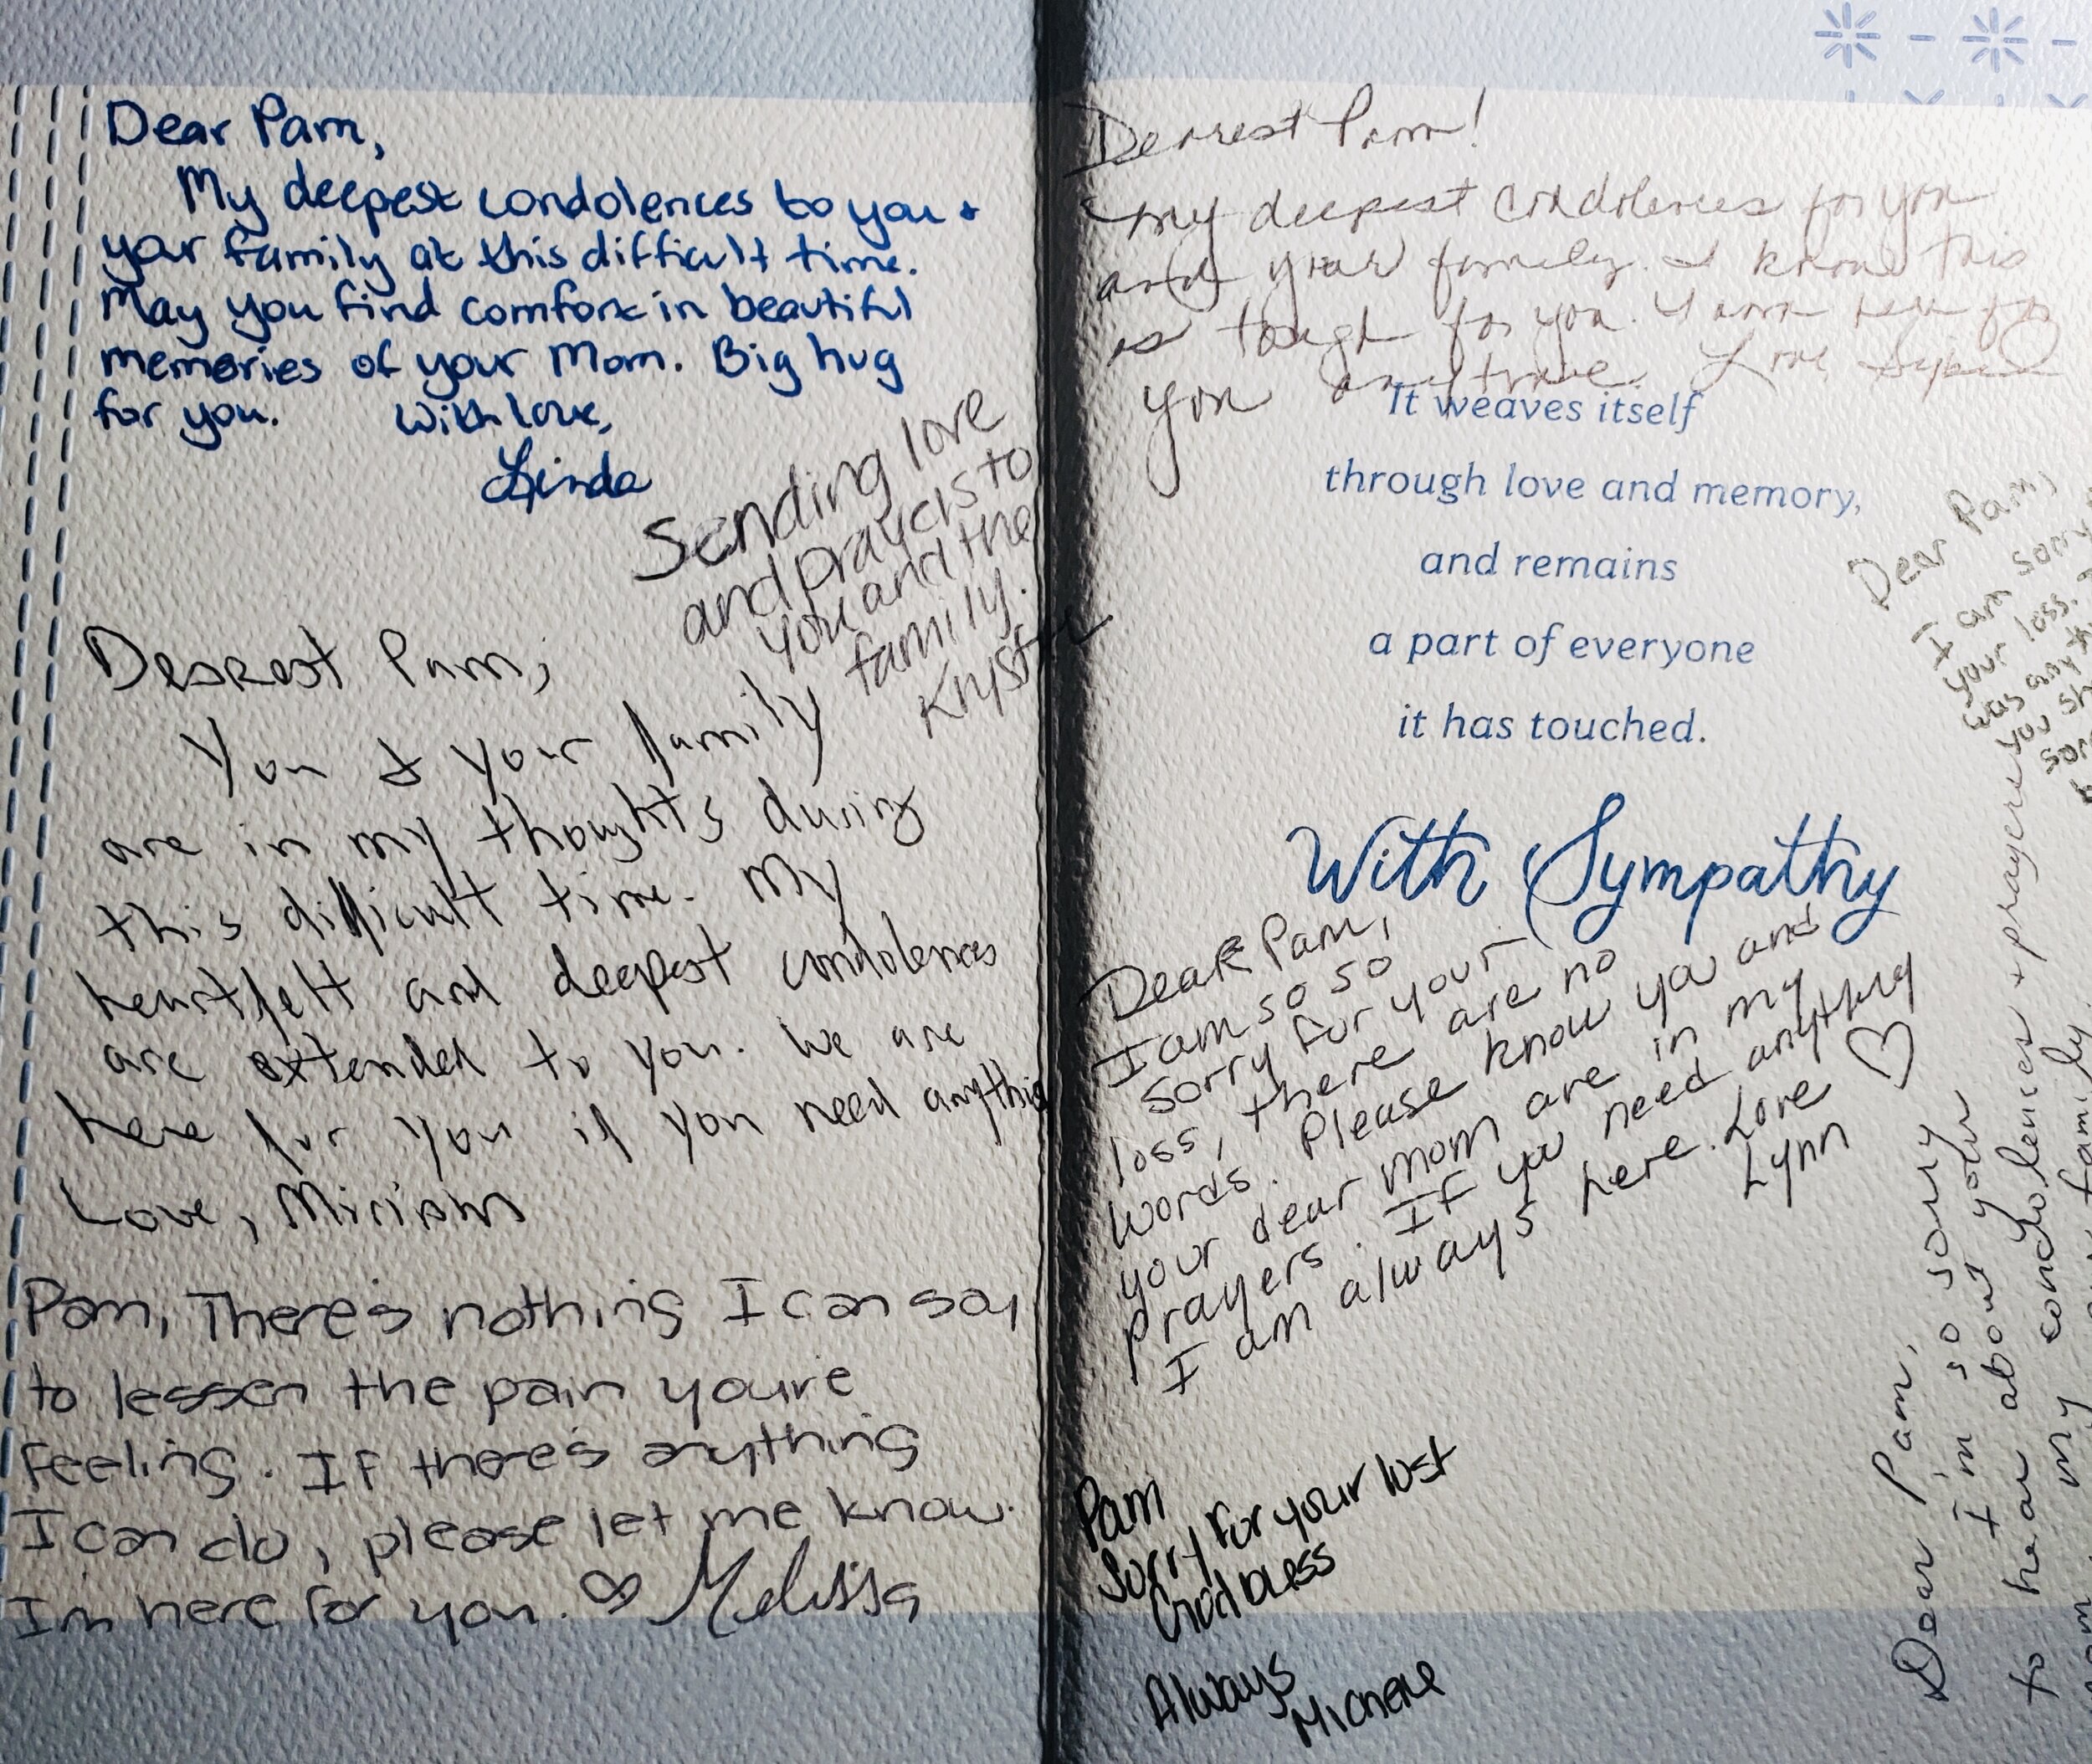 Dear Pam,
My deepest condolences to you +
your family at this difficult time.
May you find comfort in beautiful
memories of your Mom. Big hug
for you. With love,
Linda
Sending love
and prayers to
you and the
family.
Dearest Pam,
You & your family
are in my thoughts during
this difficult time. My
heartfelt and deepest condolences
are extended to you. We are
here for you if you need anything
Love, Miriam
Pam, There's nothing I can say
to lessen the pain youre
feeling. If there's anything
I can do, please let me know.
I'm here for you. ♡ Melissa
Dearest Pam!
my deepest condolences for you
and your family. I know this
is tough for you. I am here for
you anytime. Love
It weaves itself
through love and memory,
and remains
a part of everyone
it has touched.
With Sympathy
Dear Pam,
I am so so
sorry for your
loss, there are no
words. Please know you and
your dear mom are in my
prayers. If you need anything
I am always here. Love ♡
Lynn
Pam
Sorry for your lost
God bless
Always
Michelle
Dear Pam,
I am sorry
your loss.
was
you
Dear Pam,
I'm so sorry
to hear about your
my condolences + prayers
family